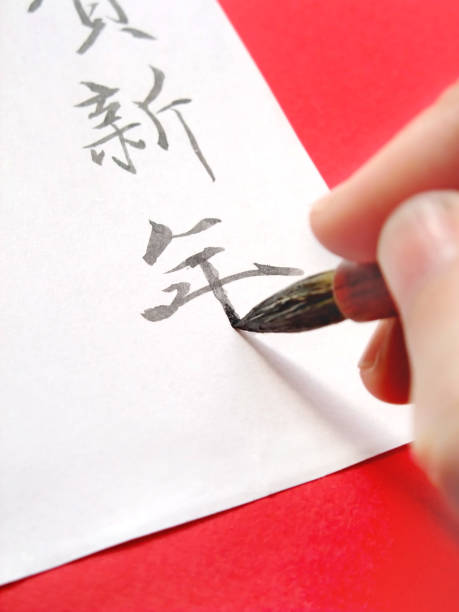 賀新年